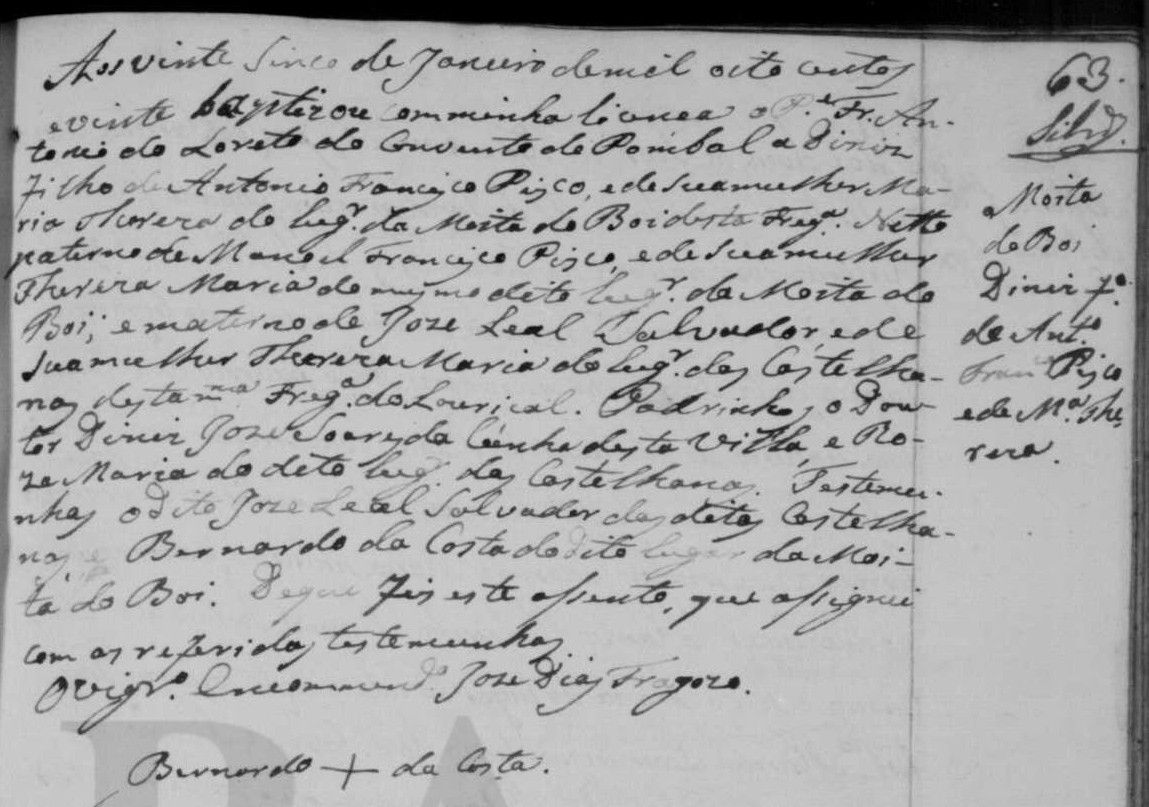 Aos vinte sinco de Janeiro de mil oito centos
e vinte baptizou com minha licença o P.e Fr. An-
tonio do Loreto do Convento de Pombal a Diniz
filho de Antonio Francisco Pisco, e de sua mulher Ma-
ria Thereza do lug.r da Moita do Boi desta Freg.a Netto
paterno de Manoel Francisco Pisco, e de sua mulher
Thereza Maria do mesmo dito lug.r da Moita do
Boi; e materno de Joze Leal Salvador, e de
sua mulher Thereza Maria do lug.r das Castelha-
nas desta m.ma Freg.a do Louriçal. Padrinhos o Dou-
tor Diniz Joze Soares da Cunha desta Villa, e Ro-
za Maria do dito lug.r das Castelhanas. Testemu-
nhas o dito Joze Leal Salvador das ditas Castelha-
nas, e Bernardo da Costa do dito lugar da Moi-
ta do Boi. De que fis este assento, que assignei
com as referidas testemunhas.
O vigr.o Encommend.o Joze Dias Fragozo.
Bernardo + da Costa.
63.
Moita
do Boi
Diniz f.o
de Ant.o
Fran.co Pisco
e de M.a The
reza.